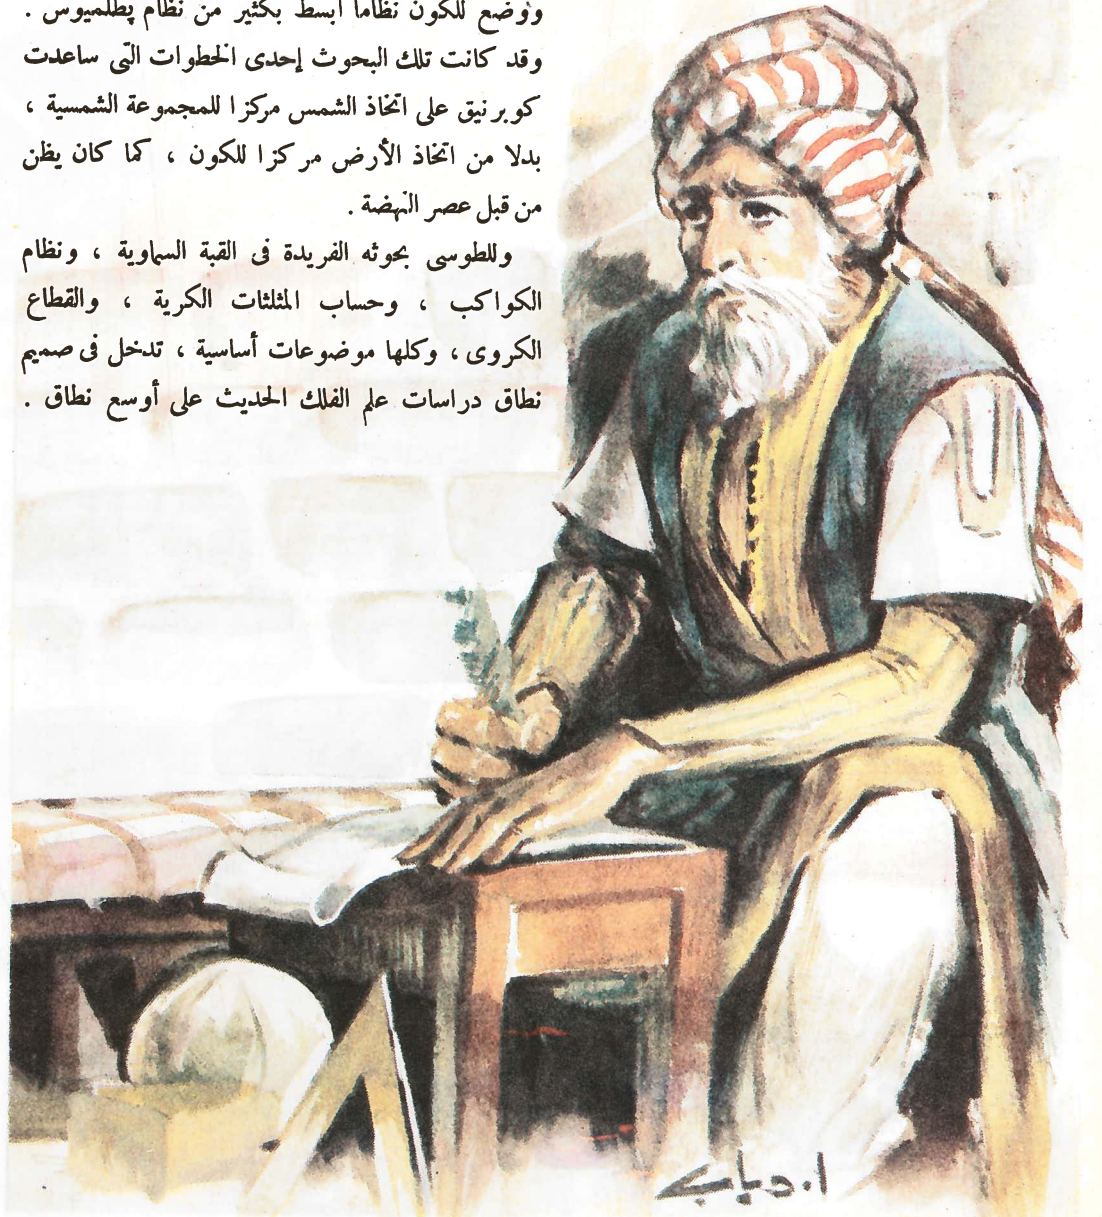 ووضع للكون نظاما أبسط بكثير من نظام پطلميوس .
وقد كانت تلك البحوث إحدى الخطوات التى ساعدت
كوبرنيق على اتخاذ الشمس مركزا للمجموعة الشمسية ،
بدلا من اتخاذ الأرض مركزا للكون ، كما كان يظن
من قبل عصر النهضة .
وللطوسى بحوثه الفريدة فى القبة السماوية ، ونظام
الكواكب ، وحساب المثلثات الكرية ، والقطاع
الكروى ، وكلها موضوعات أساسية ، تدخل فى صميم
نطاق دراسات علم الفلك الحديث على أوسع نطاق .
ا . دياب